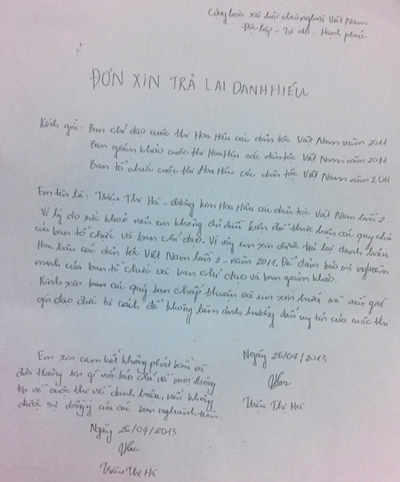 Cộng hòa xã hội chủ nghĩa Việt Nam
Độc lập - Tự do - Hạnh phúc
ĐƠN XIN TRẢ LẠI DANH HIỆU
Kính gửi: Ban chỉ đạo cuộc thi Hoa Hậu các dân tộc Việt Nam năm 2011
Ban giám khảo cuộc thi Hoa Hậu các dân tộc Việt Nam năm 2011
Ban tổ chức cuộc thi Hoa Hậu các dân tộc Việt Nam năm 2011
Em tên là: Triệu Thị Hà - đương kim Hoa Hậu các dân tộc Việt Nam lần 2
Vì lý do sức khỏe nên em không thể thực hiện các quy chế
của ban tổ chức và ban chỉ đạo. Vì vậy em xin được trả lại danh hiệu
Hoa hậu các dân tộc Việt Nam lần 2 - năm 2011. Để đảm bảo sự nghiêm
minh của ban tổ chức và ban chỉ đạo và ban giám khảo.
Kính xin ban các quý ban chấp thuận và em xin
đạo đức tư cách để không làm ảnh hưởng đến uy tín của cuộc thi
Em xin cam kết không phát biểu và
đưa thông tin gì với báo chí về mọi thông
tin về cuộc thi và danh hiệu, nếu không
được sự đồng ý của các ban
Ngày 26/09/2013
Triệu Thị Hà
Ngày 26/09/2013
Triệu Thị Hà